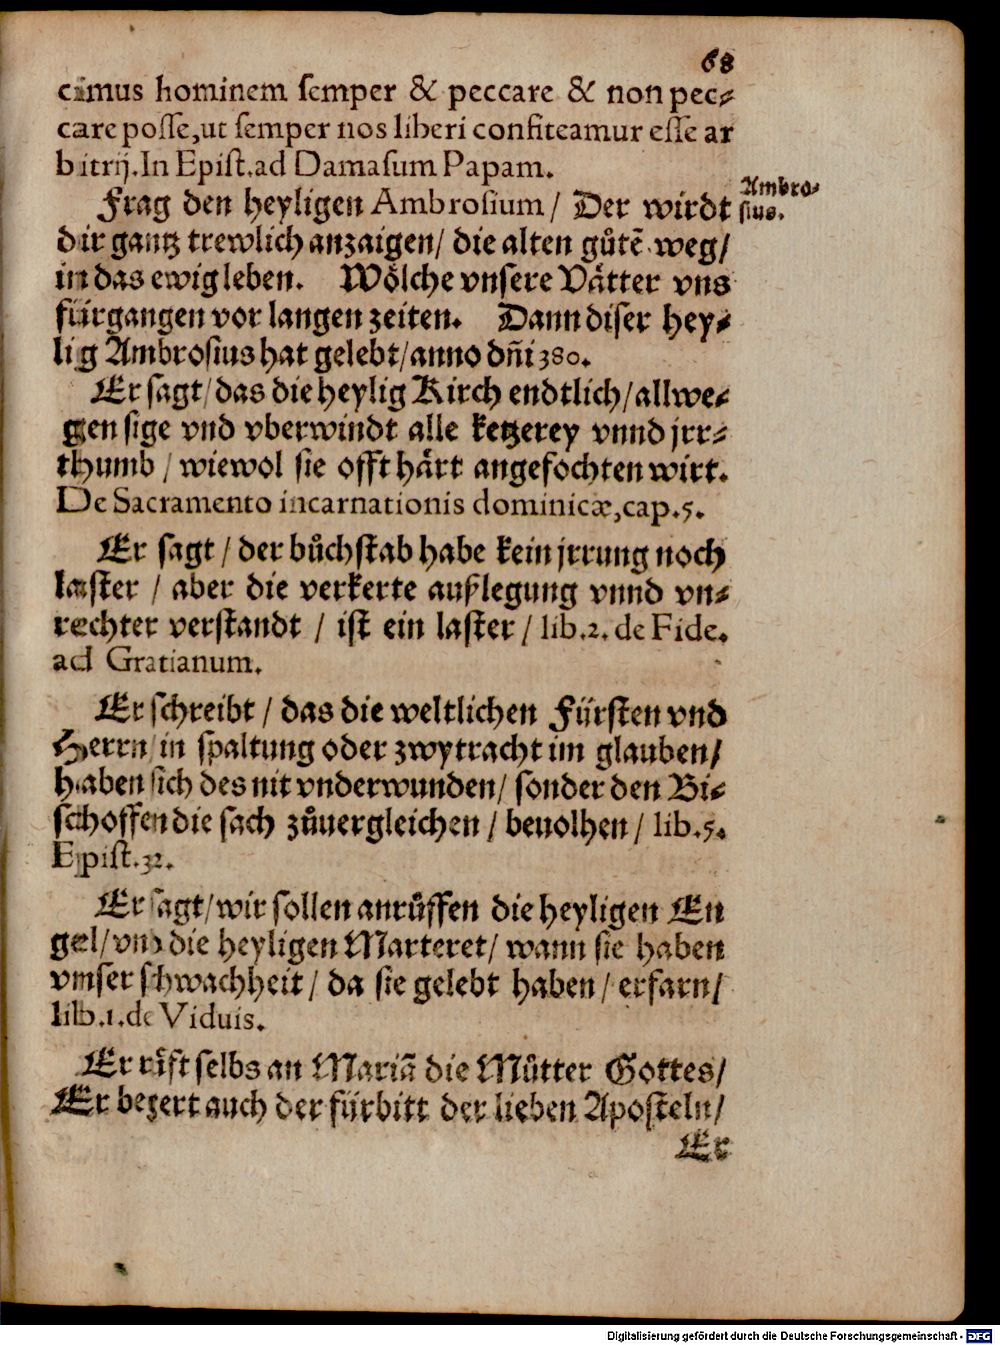 68
cimus hominem ſemper & peccare & non pec⸗
care poſſe,ut ſemper nos liberi confiteamur eſſe ar
bitrij.In Epiſt.ad Damaſum Papam.
Frag den heyligen Ambroſium/ Der wirdt
Ambro⸗
ſius.
dir gantz trewlich anzaigen/ die alten gůtẽ weg/
in das ewig leben. Woͤlche vnſere Vaͤtter vns
fürgangen vor langen zeiten. Dann diſer hey⸗
lig Ambroſius hat gelebt/anno dñi 380.
Er ſagt/das die heylig Kirch endtlich/allwe⸗
gen ſige vnd vberwindt alle ketzerey vnnd jrr⸗
thumb/wiewol ſie offt haͤrt angefochten wirt.
De Sacramento incarnationis dominicæ,cap.5.
Er ſagt/der bůchſtab habe kein jrrung noch
laſter/aber die verkerte außlegung vnnd vn⸗
rechter verſtandt/iſt ein laſter/lib.2. de Fide.
ad Gratianum.
Er ſchreibt/das die weltlichen Fürſten vnd
Herrn/in ſpaltung oder zwytracht im glauben/
haben ſich des nit vnderwunden/ſonder den Bi⸗
ſchoffen die ſach zůuergleichen/beuolhen/lib.5.
Epiſt.32.
Er ſagt/wir ſollen anrůffen die heyligen En
gel/vnd die heyligen Marteret/wann ſie haben
vnſer ſchwachheit/da ſie gelebt haben/erfarn/
lib.1.de Viduis.
Er růft ſelbs an Mariã die Můtter Gottes/
Er begert auch der fürbitt der lieben Apoſteln/
Er
Digitalisierung gefördert durch die Deutsche Forschungsgemeinschaft - DFG